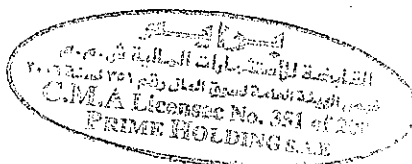 القابضة للإستشارات المالية ش.م.م
ترخيص الهيئة العامة لسوق المال رقم ٣٥١ لسنة ٢٠٠٦
C.M.A Licensee No. 351 of
PRIME HOLDING S.A.E